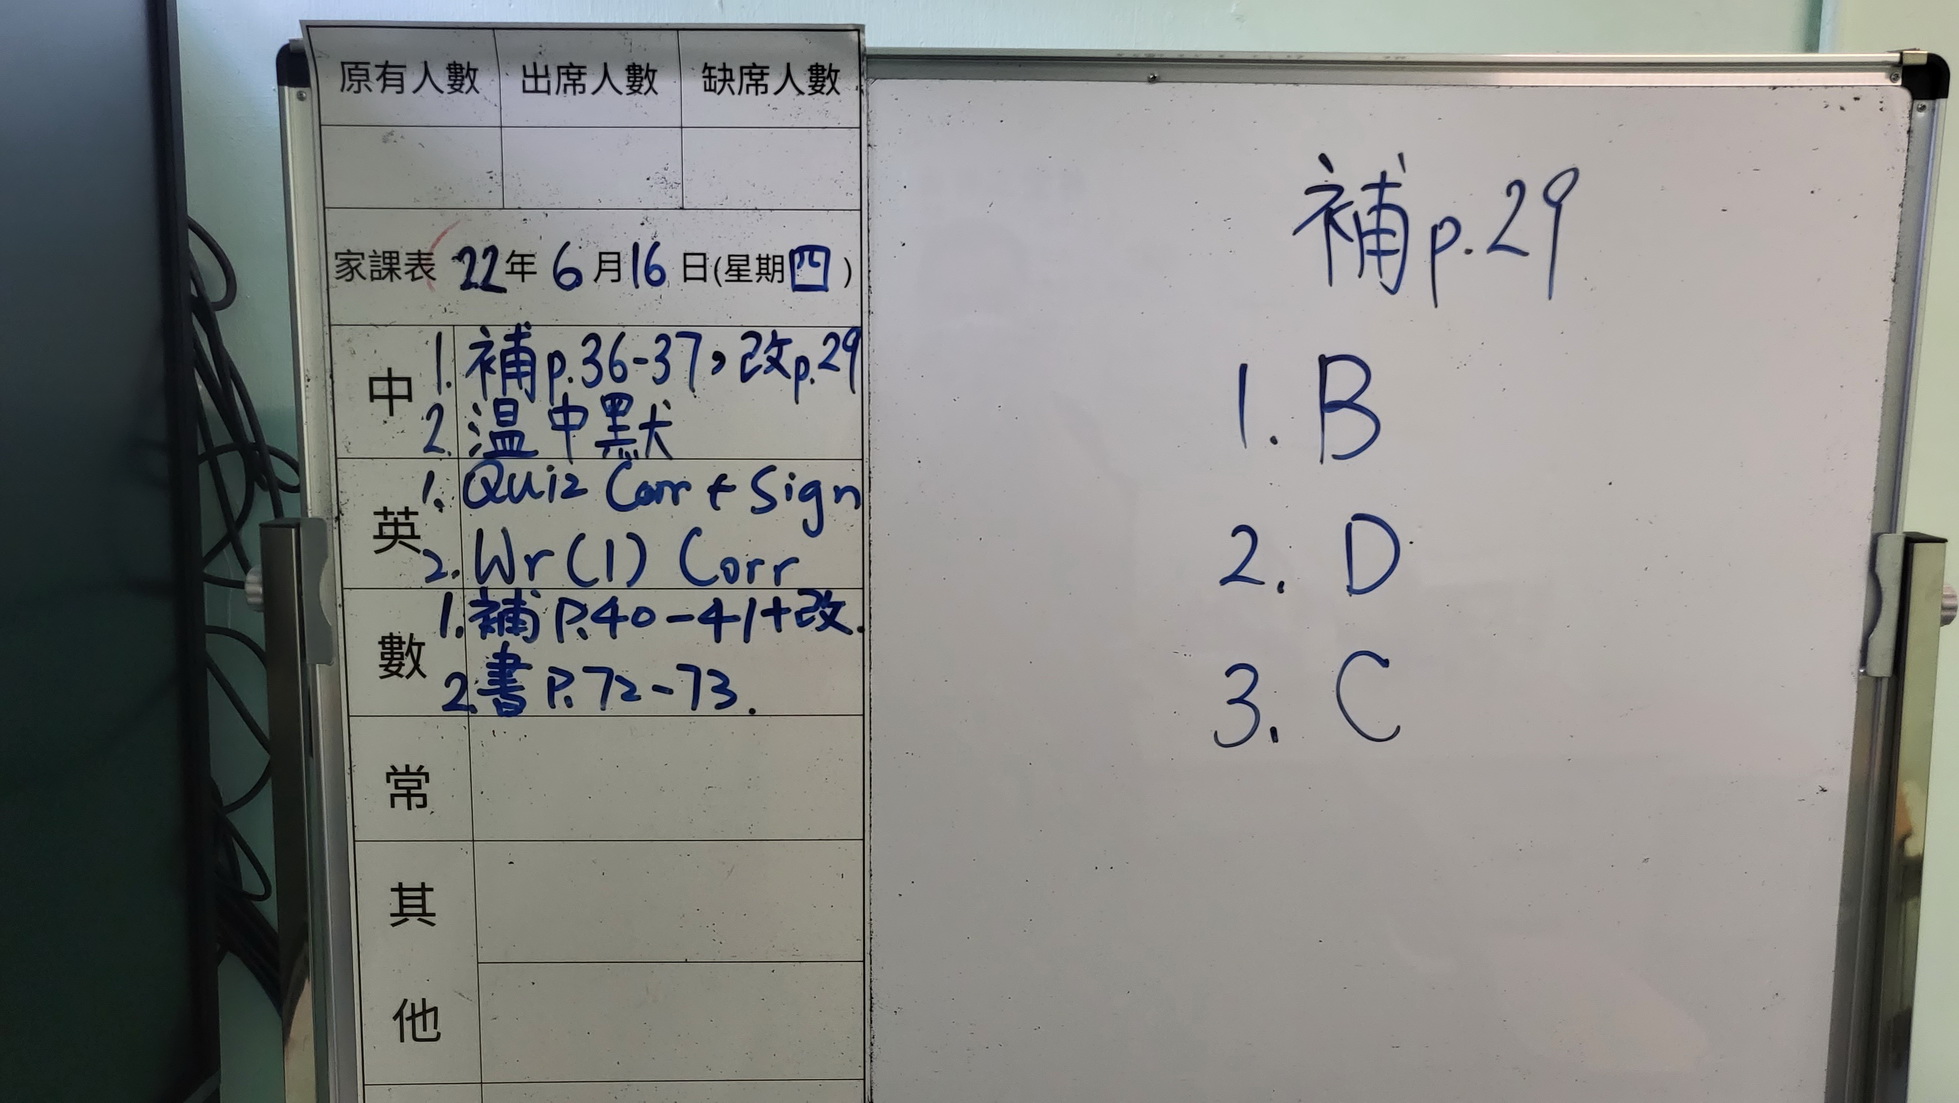 原有人數 出席人數 缺席人數
家課表 22年 6月16日(星期四)
中 1. 補p.36-37，改p.29
2. 溫中默
英 1. Quiz Corr + Sign
2. Wr(1) Corr
數 1. 補P.40-41+改.
2. 書P.72-73.
常
其
他
補p.29
1. B
2. D
3. C